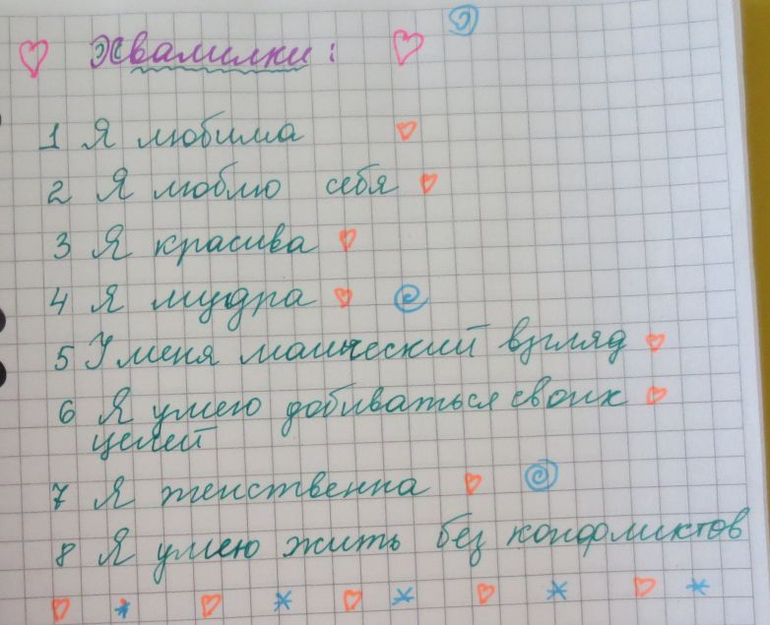 Хвалилки:
1 Я любима
2 Я люблю себя
3 Я красива
4 Я мудра
5 У меня магический взгляд
6 Я умею добиваться своих
целей
7 Я женственна
8 Я умею жить без конфликтов